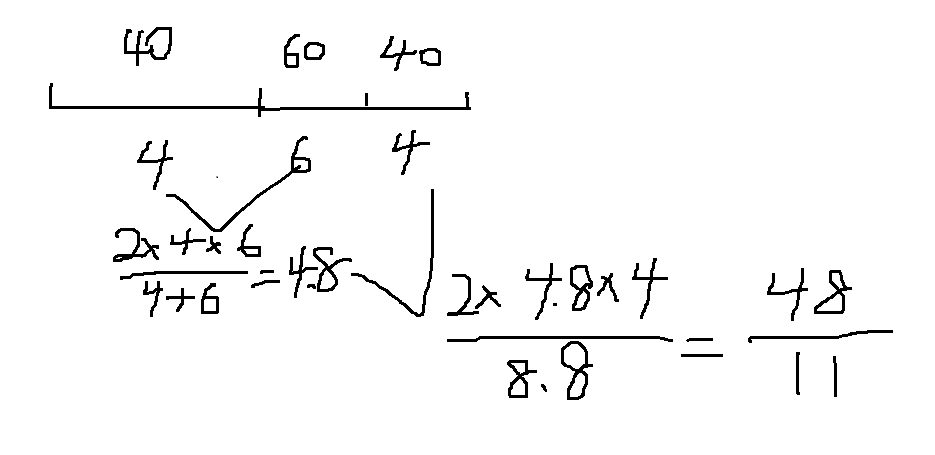 40 60 40
4 6 4
2x 4x 6
4+6
=4.8
2x 4.8x4
8.8
=
48
11